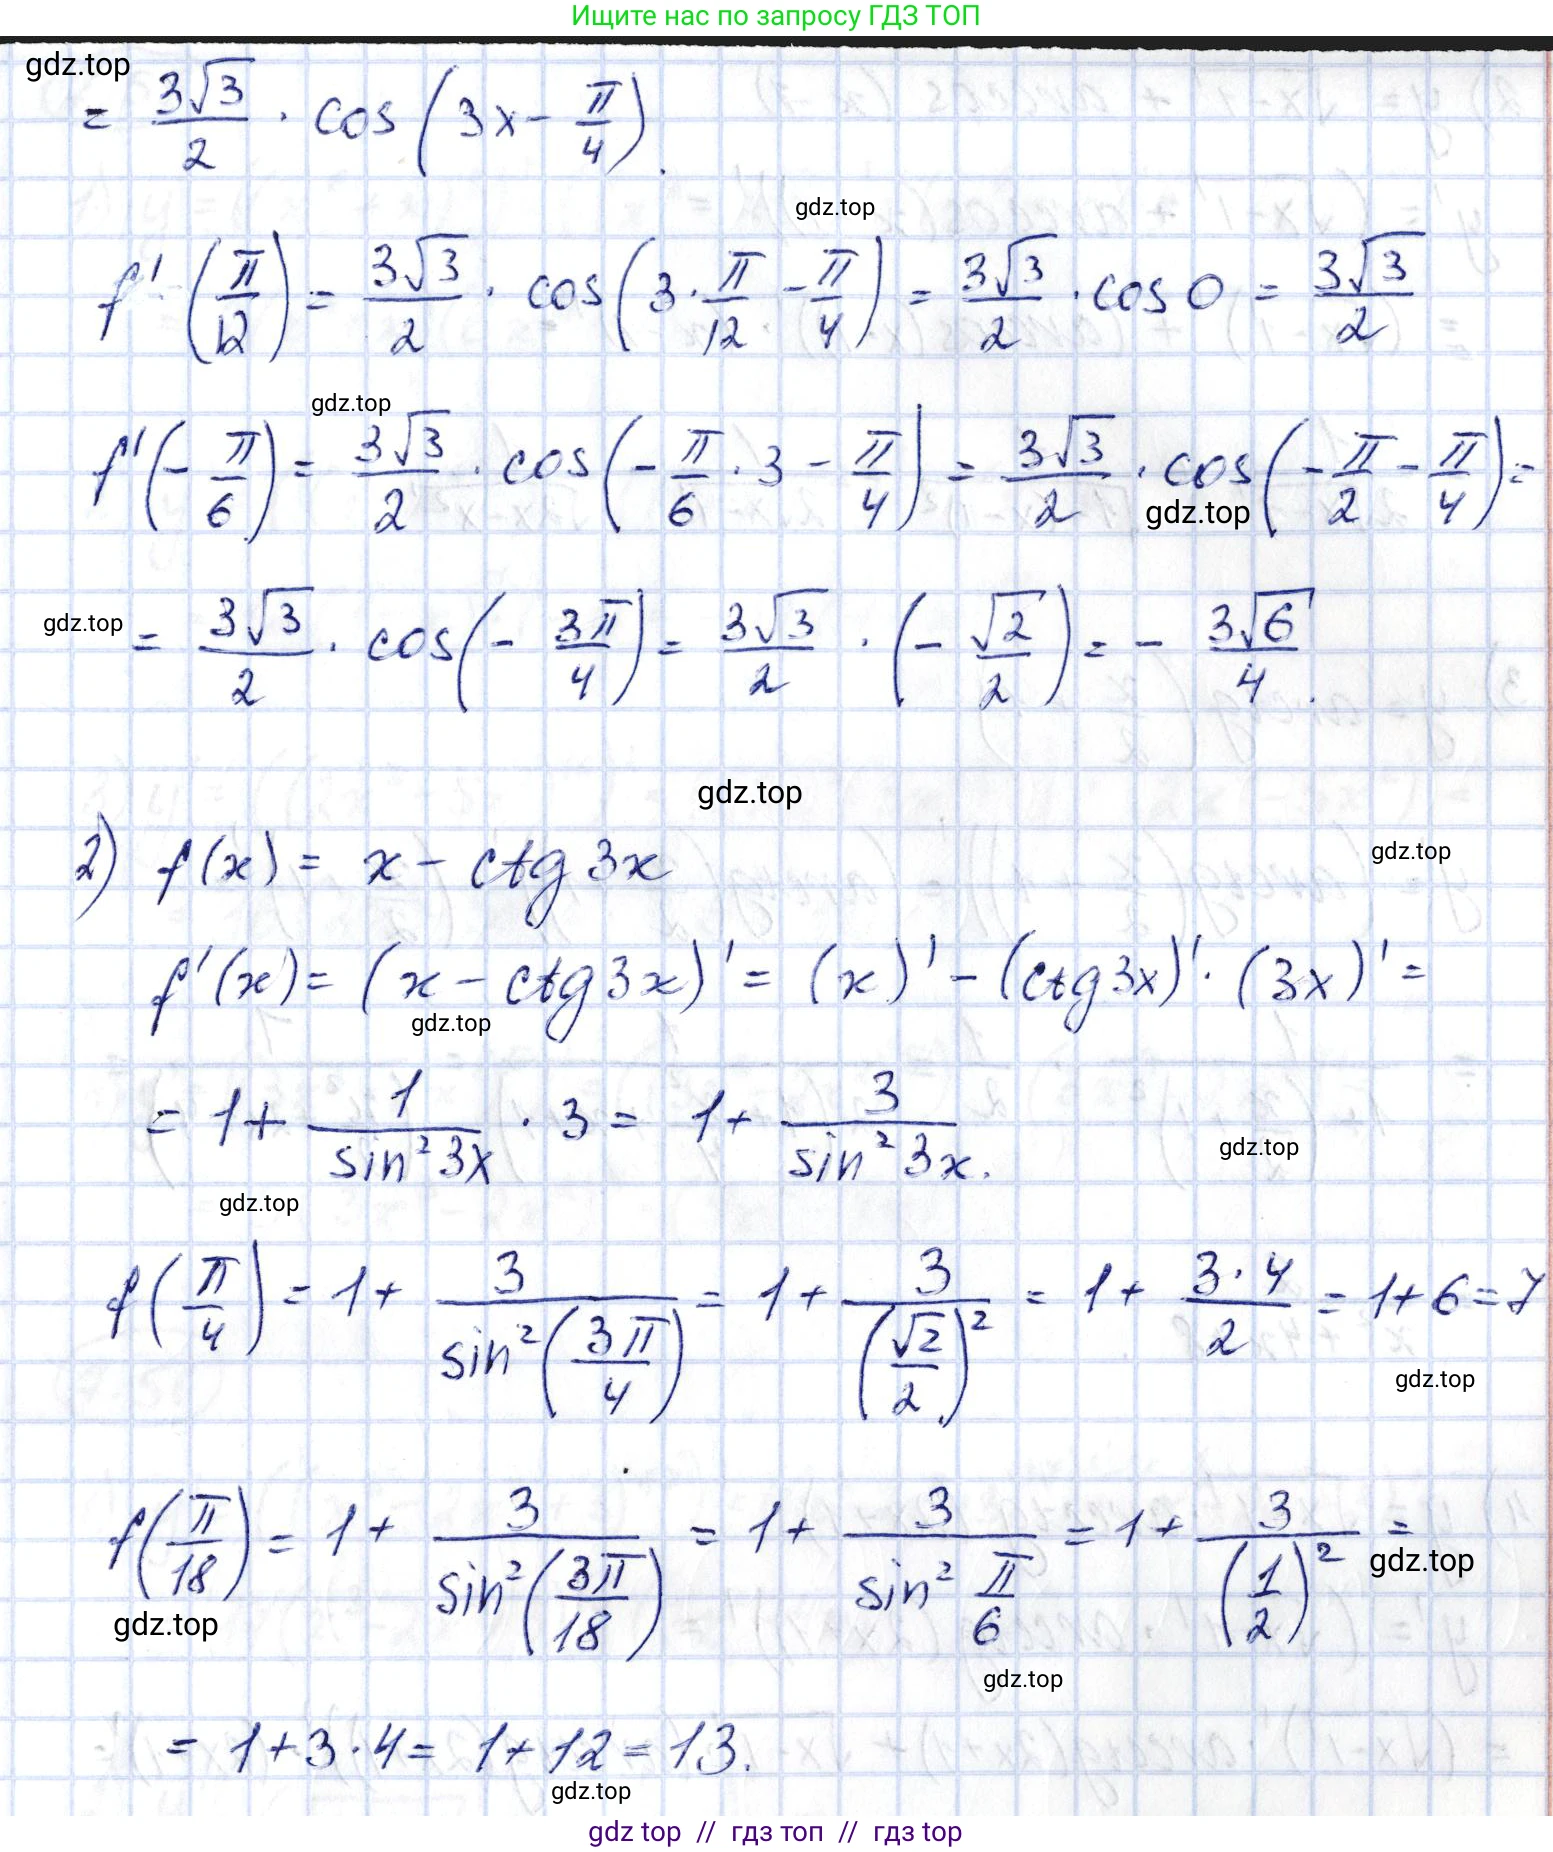 Ищите нас по запросу ГДЗ ТОП
gdz.top
= 3√3/2 · cos(3x − π/4).
gdz.top
f'(π/12) = 3√3/2 · cos(3·π/12 − π/4) = 3√3/2 · cos 0 = 3√3/2
gdz.top
f'(−π/6) = 3√3/2 · cos(−π/6 · 3 − π/4) = 3√3/2 · cos(−π/2 − π/4) =
gdz.top
gdz.top
= 3√3/2 · cos(−3π/4) = 3√3/2 · (−√2/2) = − 3√6/4.
gdz.top
2) f(x) = x − ctg 3x
gdz.top
f'(x) = (x − ctg 3x)' = (x)' − (ctg 3x)' · (3x)' =
gdz.top
= 1 + 1/sin² 3x · 3 = 1 + 3/sin² 3x.
gdz.top
gdz.top
f(π/4) = 1 + 3/sin²(3π/4) = 1 + 3/(√2/2)² = 1 + 3·4/2 = 1 + 6 = 7
gdz.top
f(π/18) = 1 + 3/sin²(3π/18) = 1 + 3/sin² π/6 = 1 + 3/(1/2)² =
gdz.top
gdz.top
gdz.top
= 1 + 3·4 = 1 + 12 = 13.
gdz.top
gdz top // гдз топ // гдз top